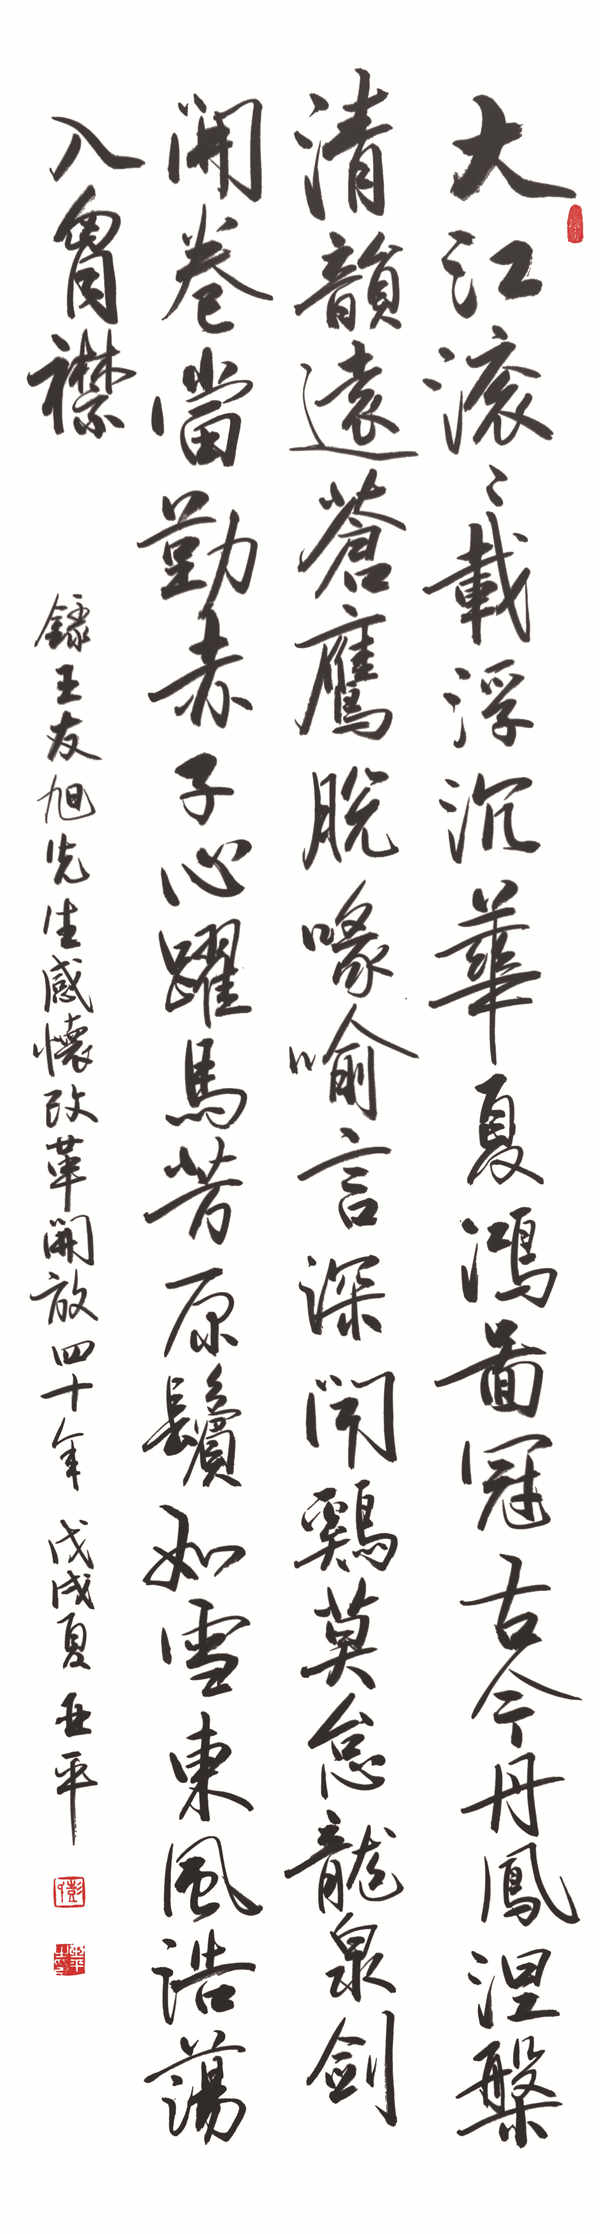 大江滾〻載浮沉華夏鴻啚冠古今丹鳳涅槃
清韻遠蒼鷹脫喙喻言深聞鷄莫怠龍泉劍
開卷當勤赤子心躍馬芳原鬢如雪東風浩蕩
入胷襟
錄王友旭先生感懷改革開放四十年 戊戌夏 亚平